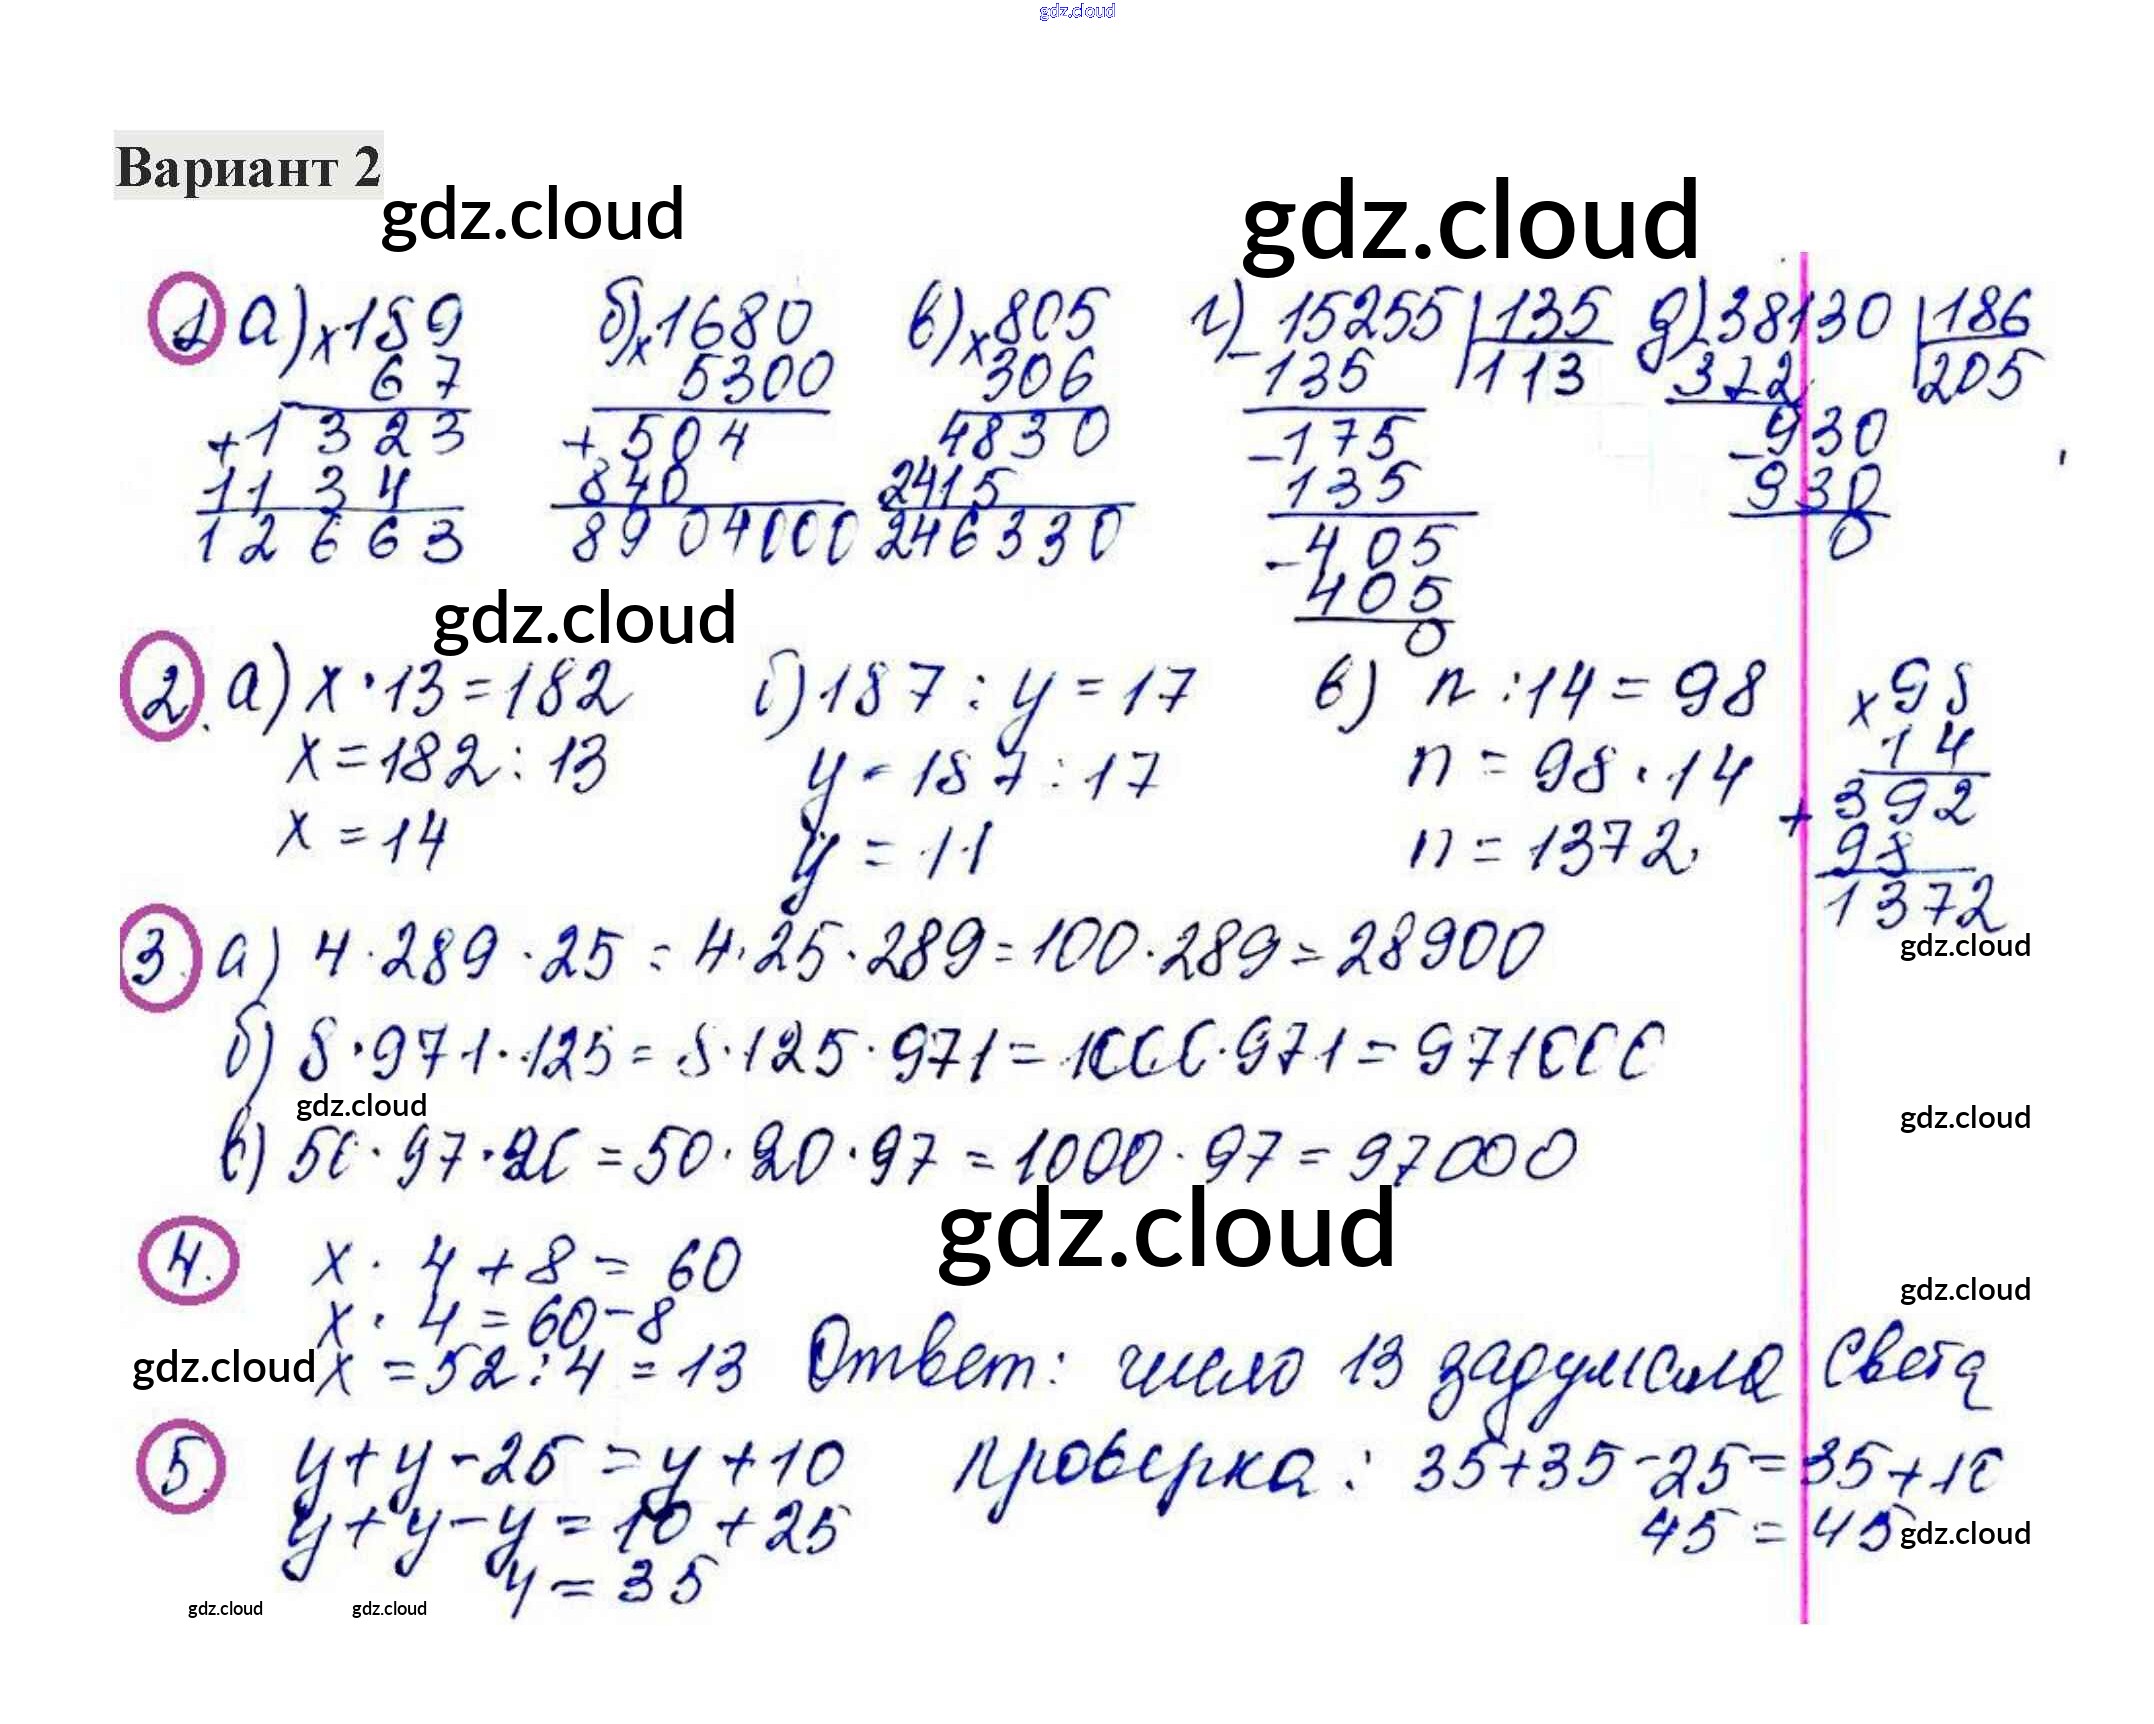 gdz.cloud
Вариант 2
gdz.cloud gdz.cloud
1 а) ×189 б) ×1680 в) ×805 г) 15255 | 135 д) 38130 | 186
67 5300 306 −135 113 372 205
+1323 +504 4830 −175 −930
1134 840 2415 135 930
12663 8904000 246330 −405 0
405
0
gdz.cloud
2. а) x · 13 = 182 б) 187 : y = 17 в) n : 14 = 98 ×98
x = 182 : 13 y = 187 : 17 n = 98 · 14 14
x = 14 y = 11 n = 1372 +392
98
1372
gdz.cloud
3. а) 4 · 289 · 25 = 4 · 25 · 289 = 100 · 289 = 28900
б) 8 · 971 · 125 = 8 · 125 · 971 = 1000 · 971 = 971000
gdz.cloud gdz.cloud
в) 50 · 97 · 20 = 50 · 20 · 97 = 1000 · 97 = 97000
gdz.cloud
4. x · 4 + 8 = 60
gdz.cloud
x · 4 = 60 − 8
gdz.cloud x = 52 : 4 = 13 Ответ: число 13 задумала Света
5. y + y − 25 = y + 10 проверка: 35 + 35 − 25 = 35 + 10
y + y − y = 10 + 25 45 = 45 gdz.cloud
y = 35
gdz.cloud gdz.cloud